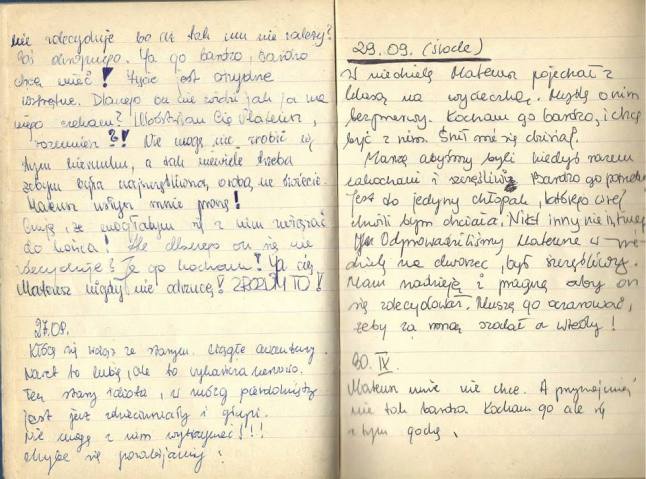 nie zdecyduje bo aż tak mu nie zależy?
Coś okropnego. Ja go bardzo, bardzo
chcę mieć! Życie jest okrutne
wstrętne. Dlaczego on nie widzi jak ja na
niego czekam? Mateusz,
rozumiesz?! Nie mogę nic zrobić w
tym kierunku, a tak niewiele trzeba
żebym była najszczęśliwszą osobą na świecie.
Mateusz usłysz mnie proszę!
Czuję, że mogłabym się z nim związać
do końca! Ale dlaczego on się nie
zdecyduje? Ja go kocham! Ja cię
Mateusz nigdy nie odrzucę! ZROZUM TO!
27.09.
Kłócę się wciąż ze starym. Ciągle awantury.
Nawet to lubię, ale to wykańcza nerwowo.
Ten stary idiota, w mózg pierdolnięty
jest już zdziecinniały i głupi.
Nie mogę z nim wytrzymać!!!
chyba się pozabijamy!
29.09. (środa)
W niedzielę Mateusz pojechał z
klasą na wycieczkę. Myślę o nim
bezprzerwy. Kocham go bardzo, i chcę
być z nim. Śnił mi się dzisiaj.
Marzę abyśmy byli kiedyś razem
zakochani i szczęśliwi. Bardzo go
Jest to jedyny chłopak, którego w tej
chwili bym chciała. Nikt inny nie
Odprowadziliśmy Mateusza w
na dworzec, był szczęśliwy.
Mam nadzieję i pragnę aby on
się zdecydował. Muszę go oczarować,
żeby za mną szalał a wtedy!
30. IX.
Mateusz mnie nie chce. A przynajmniej
nie tak bardzo. Kocham go ale się
z tym godzę.